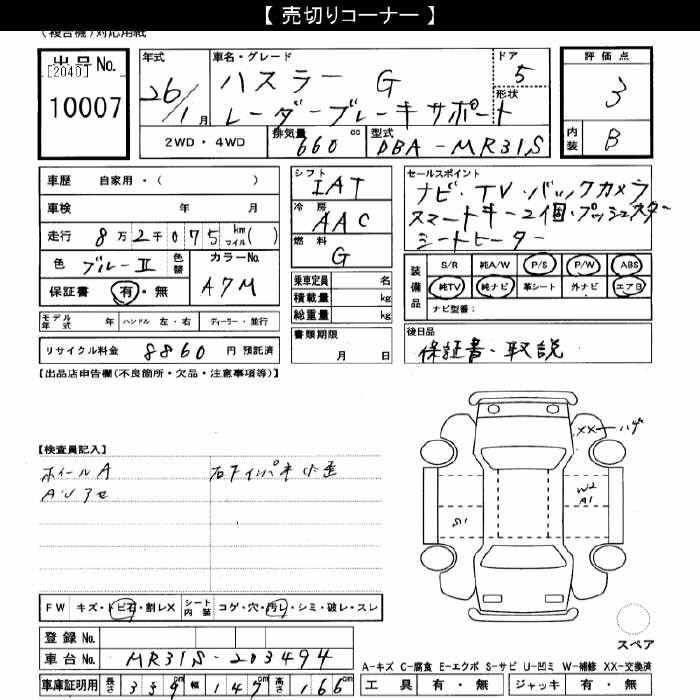 【 売切りコーナー 】
(複合機)対応用紙
出品No. [2040] 10007
年式 26/1月
車名・グレード ハスラー G
レーダーブレーキサポート
ドア 5
形状
2WD・4WD 排気量 660 cc 型式 DBA-MR31S
評価点 3
内装 B
車歴 自家用・( )
車検 年 月
走行 8万2千075 km マイル( )
色 ブルーⅡ 色替 カラーNo. A7M
保証書 有・無
モデル年式 年 ハンドル 左・右 ディーラー・並行
リサイクル料金 8860 円 預託済
シフト IAT
冷房 AAC
燃料 G
乗車定員 名
積載量 kg
総重量 kg
書類期限
月 日
セールスポイント
ナビ・TV・バックカメラ
スマートキー2個・プッシュスター
シートヒーター
装備品 S/R 純A/W P/S P/W ABS
純TV 純ナビ 革シート 外ナビ エアB
ナビ型番:
後日品
保証書・取説
【出品店申告欄(不良箇所・欠品・注意事項等)】
【検査員記入】
ホイールA
右下インパネ小歪
XX ハゲ
W2
A1
S1
FW キズ・トビ石・割レX シート内装 コゲ・穴・汚レ・シミ・破レ・スレ
登録No.
車台No. MR31S-203494
車庫証明用 長さ 339 cm 幅 147 cm 高さ 166 cm
スペア
A-キズ C-腐食 E-エクボ S-サビ U-凹ミ W-補修 XX-交換済
工具 有・無 ジャッキ 有・無